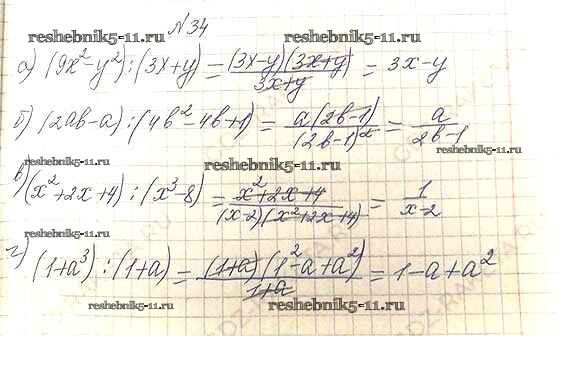 №34
reshebnik5-11.ru reshebnik5-11.ru
а) (9x²-y²):(3x+y) = (3x-y)(3x+y)/3x+y = 3x-y
б) (2ab-a):(4b²-4b+1) = a(2b-1)/(2b-1)² = a/2b-1
reshebnik5-11.ru reshebnik5-11.ru
в) (x²+2x+4):(x³-8) = x²+2x+4/(x-2)(x²+2x+4) = 1/x-2
reshebnik5-11.ru
г) (1+a³):(1+a) = (1+a)(1²-a+a²)/1+a = 1-a+a²
reshebnik5-11.ru reshebnik5-11.ru